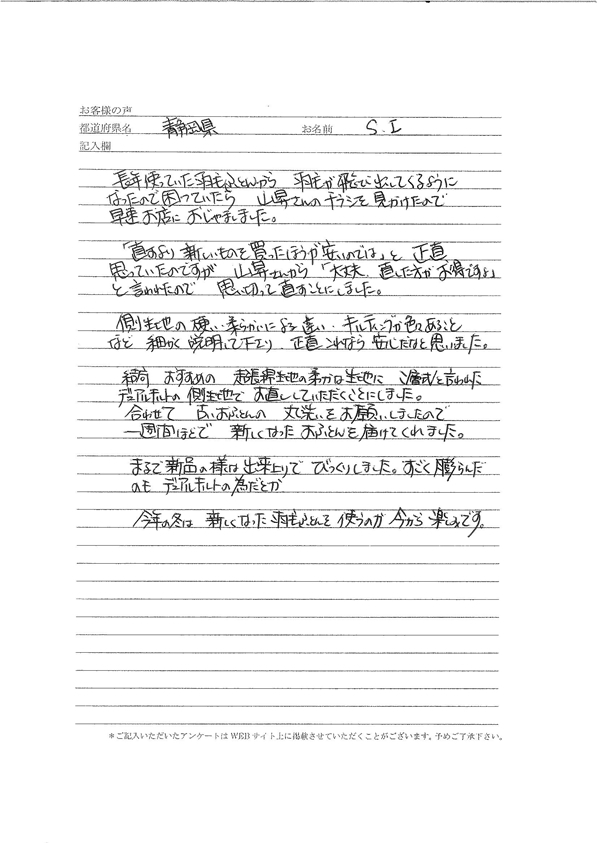 お客様の声
都道府県名 静岡県 お名前 S.I
記入欄
長年使っていた羽毛ふとんから 羽毛が飛び出してくるように
なったので困っていたら 山昇さんのチラシを見かけたので
早速お店におじゃましました。
「直すより新しいものを買ったほうが安いのでは」と 正直
思っていたのですが 山昇さんから「大丈夫、直した方がお得ですよ」
と言われたので 思い切って直すことにしました。
側生地の硬い・柔らかいによる違い・キルティングが色々あること
など 細かく説明して下さり、正直これなら安心だなと思いました。
結局 おすすめの 超長綿生地の柔かな生地に 二層式と言われた
デュアルキルトの側生地で お直ししていただくことにしました。
合わせて 古いおふとんの 丸洗いをお願いしましたので
一週間ほどで 新しくなった おふとんを届けてくれました。
まるで新品の様な出来上りで びっくりしました。すごく膨らんだ
のも デュアルキルトの為だとか
今年の冬は 新しくなった羽毛ふとんを使うのが 今から楽しみです。
*ご記入いただいたアンケートはWEBサイト上に掲載させていただくことがございます。予めご了承下さい。